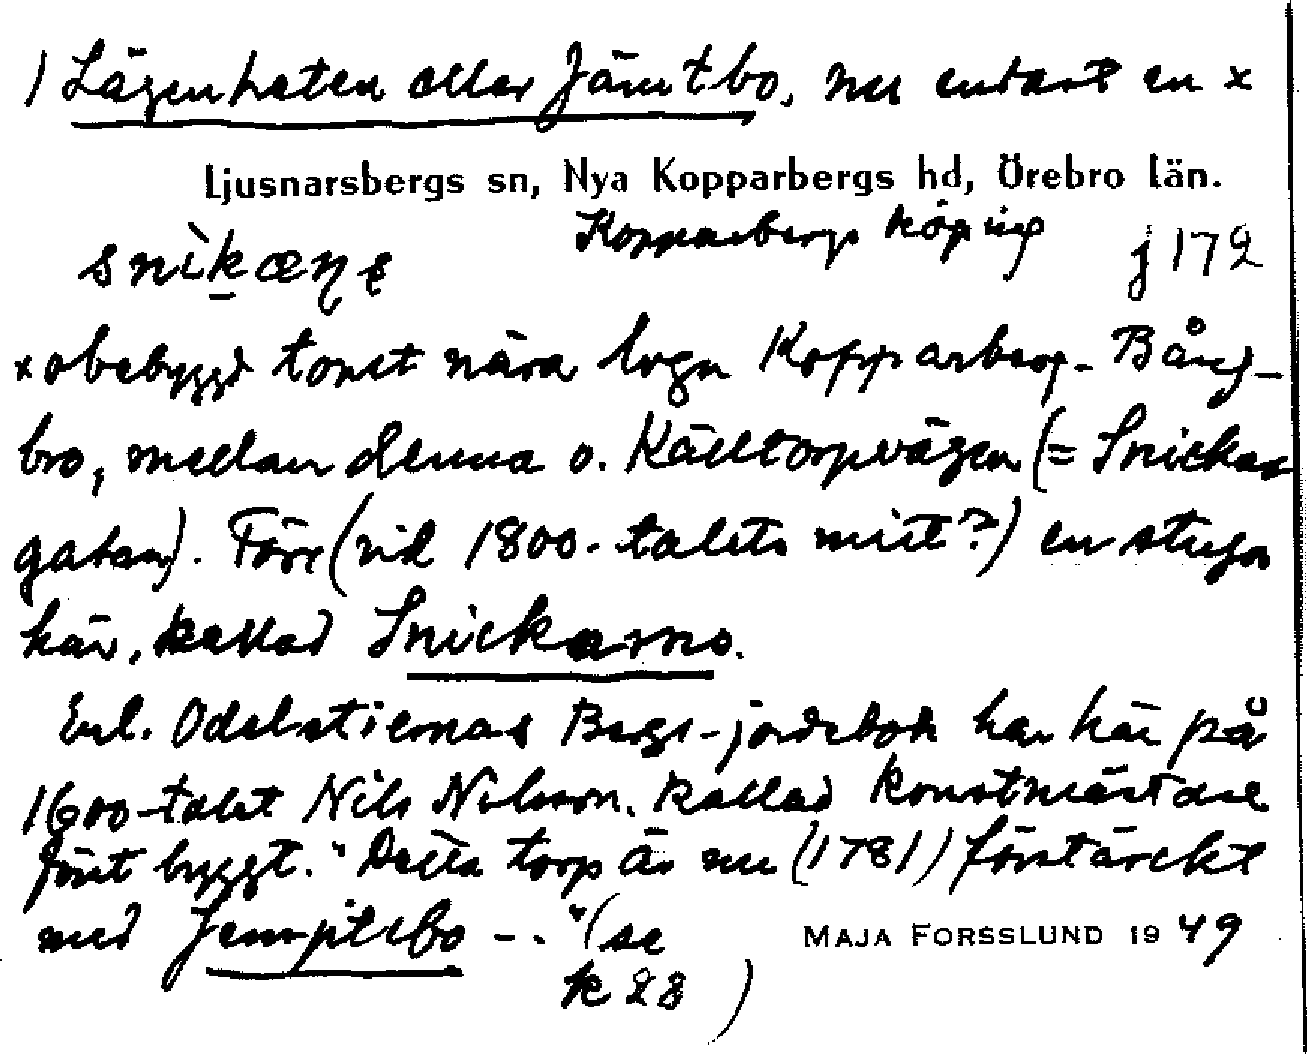 1) Lägenheten eller Jämtbo, nu endast en x
Ljusnarsbergs sn, Nya Kopparbergs hd, Örebro län.
Kopparbergs köping j 172
snìkæŋɐ
x obebyggd tomt nära lvgn Kopparberg-Bång-
bro, mellan denna o. Källtorpsvägen (= Snickar
gatan). Förr (vid 1800-talets mitt?) en stuga
här, kallad Snickarno.
Enl. Odelstiernas Bergs-jordebok har här på
1600-talet Nils Nilsson, kallad konstmästare
först byggt. "Detta torp är nu (1781) förstärckt
med Jempttebo -." (se
k 28)
MAJA FORSSLUND 1949